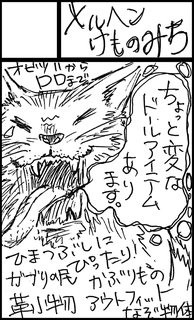 メルヘン
けものみち
オビツから
DDまで
ちょっと変な
ドールアイテム
あり
ます。
ひまつぶしに
ぴったり!
ガブリの民
かぶりもの
革小物
アウトフィット
なぞ物体